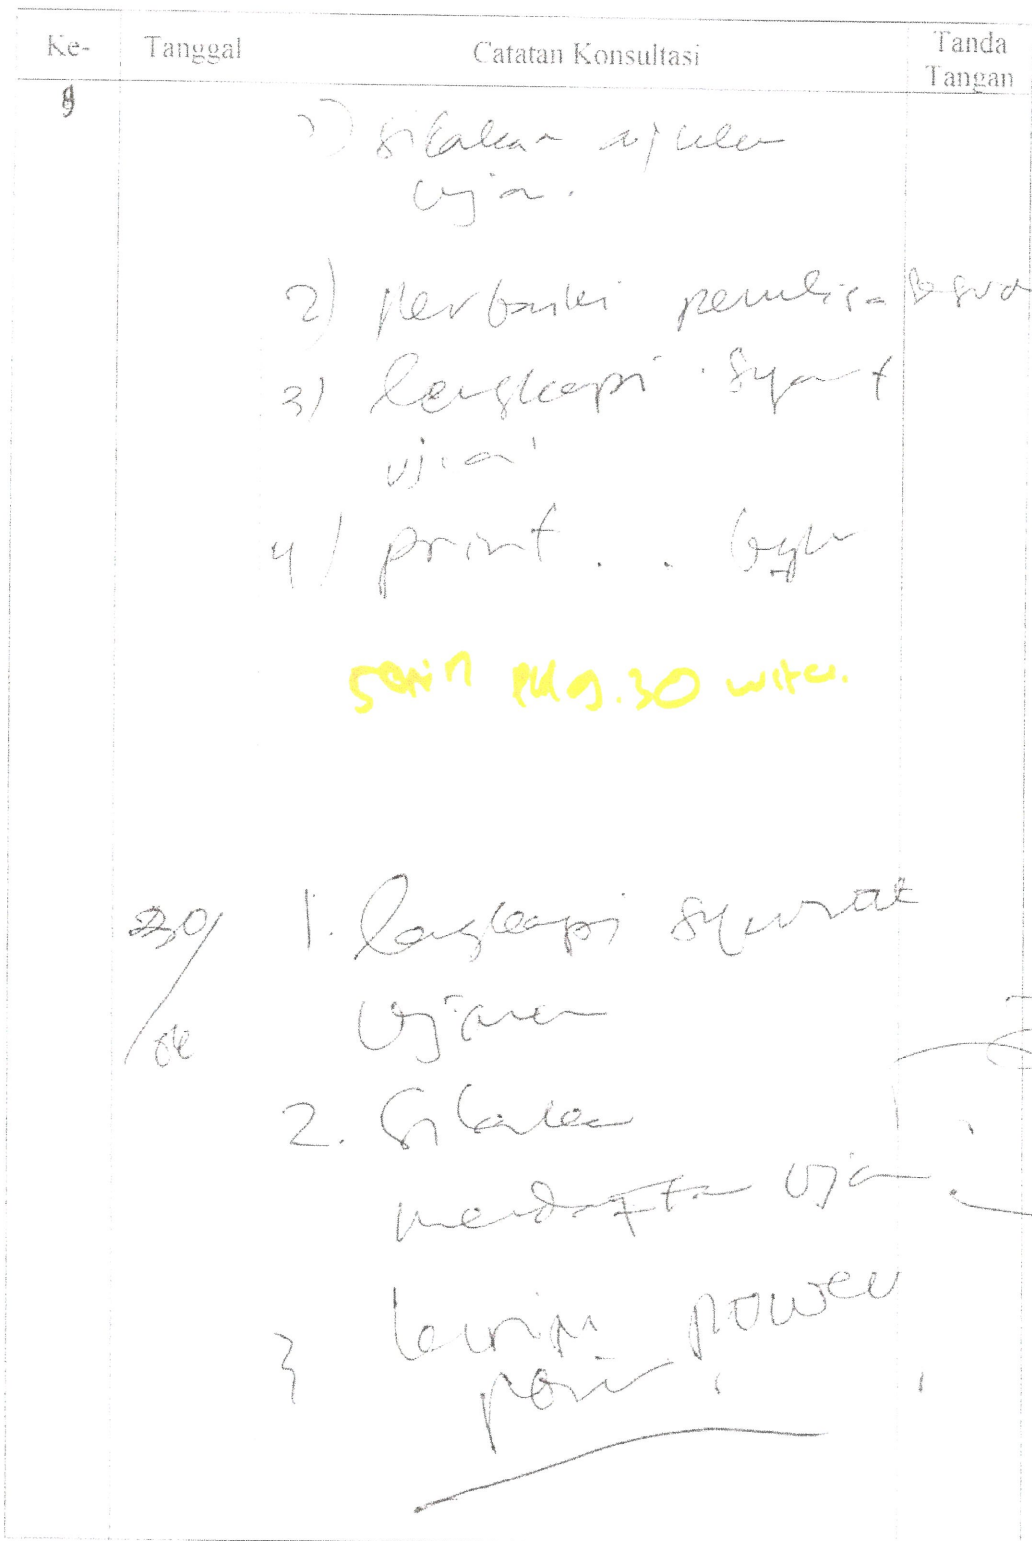 Ke- Tanggal Catatan Konsultasi Tanda Tangan
9
1) Silakan ajukan
ujian.
2) Perbaiki penulisan
3) lengkapi syarat
ujian
4) print . .
Senin Pkl 9.30 wita.
30/
1. lengkapi syarat
Ujian
2. Silakan
mendaftar ujian
3 power
point